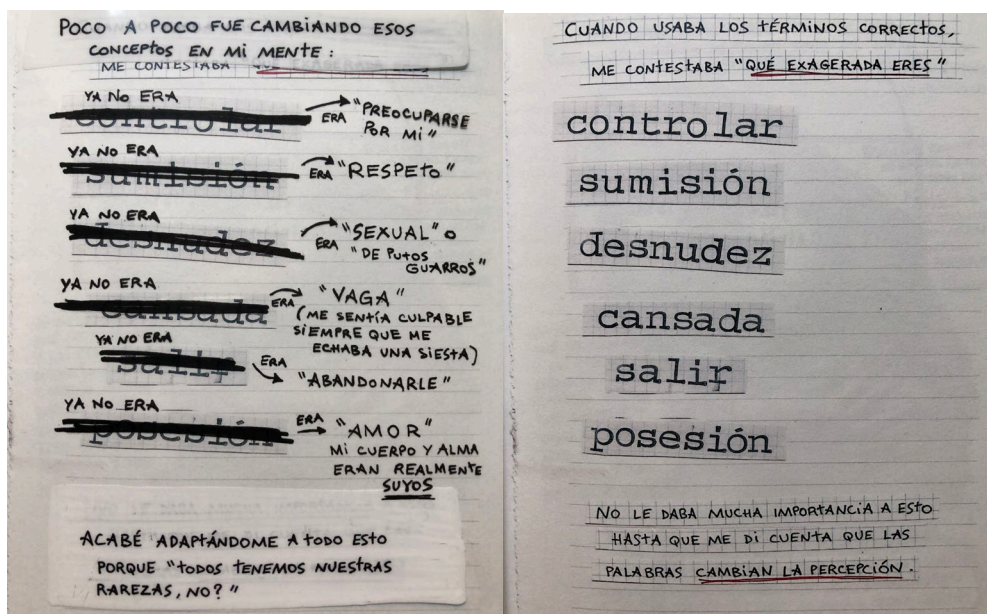 POCO A POCO FUE CAMBIANDO ESOS
CONCEPTOS EN MI MENTE:
ME CONTESTABA
YA NO ERA
controlar
ERA "PREOCUPARSE
POR MI"
YA NO ERA
sumisión
ERA "RESPETO"
YA NO ERA
desnudez
ERA "SEXUAL" O
"DE PUTOS
GUARROS"
YA NO ERA
cansada
ERA "VAGA"
(ME SENTÍA CULPABLE
SIEMPRE QUE ME
ECHABA UNA SIESTA)
YA NO ERA
salir
ERA
"ABANDONARLE"
YA NO ERA
posesión
ERA "AMOR"
MI CUERPO Y ALMA
ERAN REALMENTE
SUYOS
ACABÉ ADAPTÁNDOME A TODO ESTO
PORQUE "TODOS TENEMOS NUESTRAS
RAREZAS, NO?"
CUANDO USABA LOS TÉRMINOS CORRECTOS,
ME CONTESTABA "QUÉ EXAGERADA ERES"
controlar
sumisión
desnudez
cansada
salir
posesión
NO LE DABA MUCHA IMPORTANCIA A ESTO
HASTA QUE ME DI CUENTA QUE LAS
PALABRAS CAMBIAN LA PERCEPCIÓN.